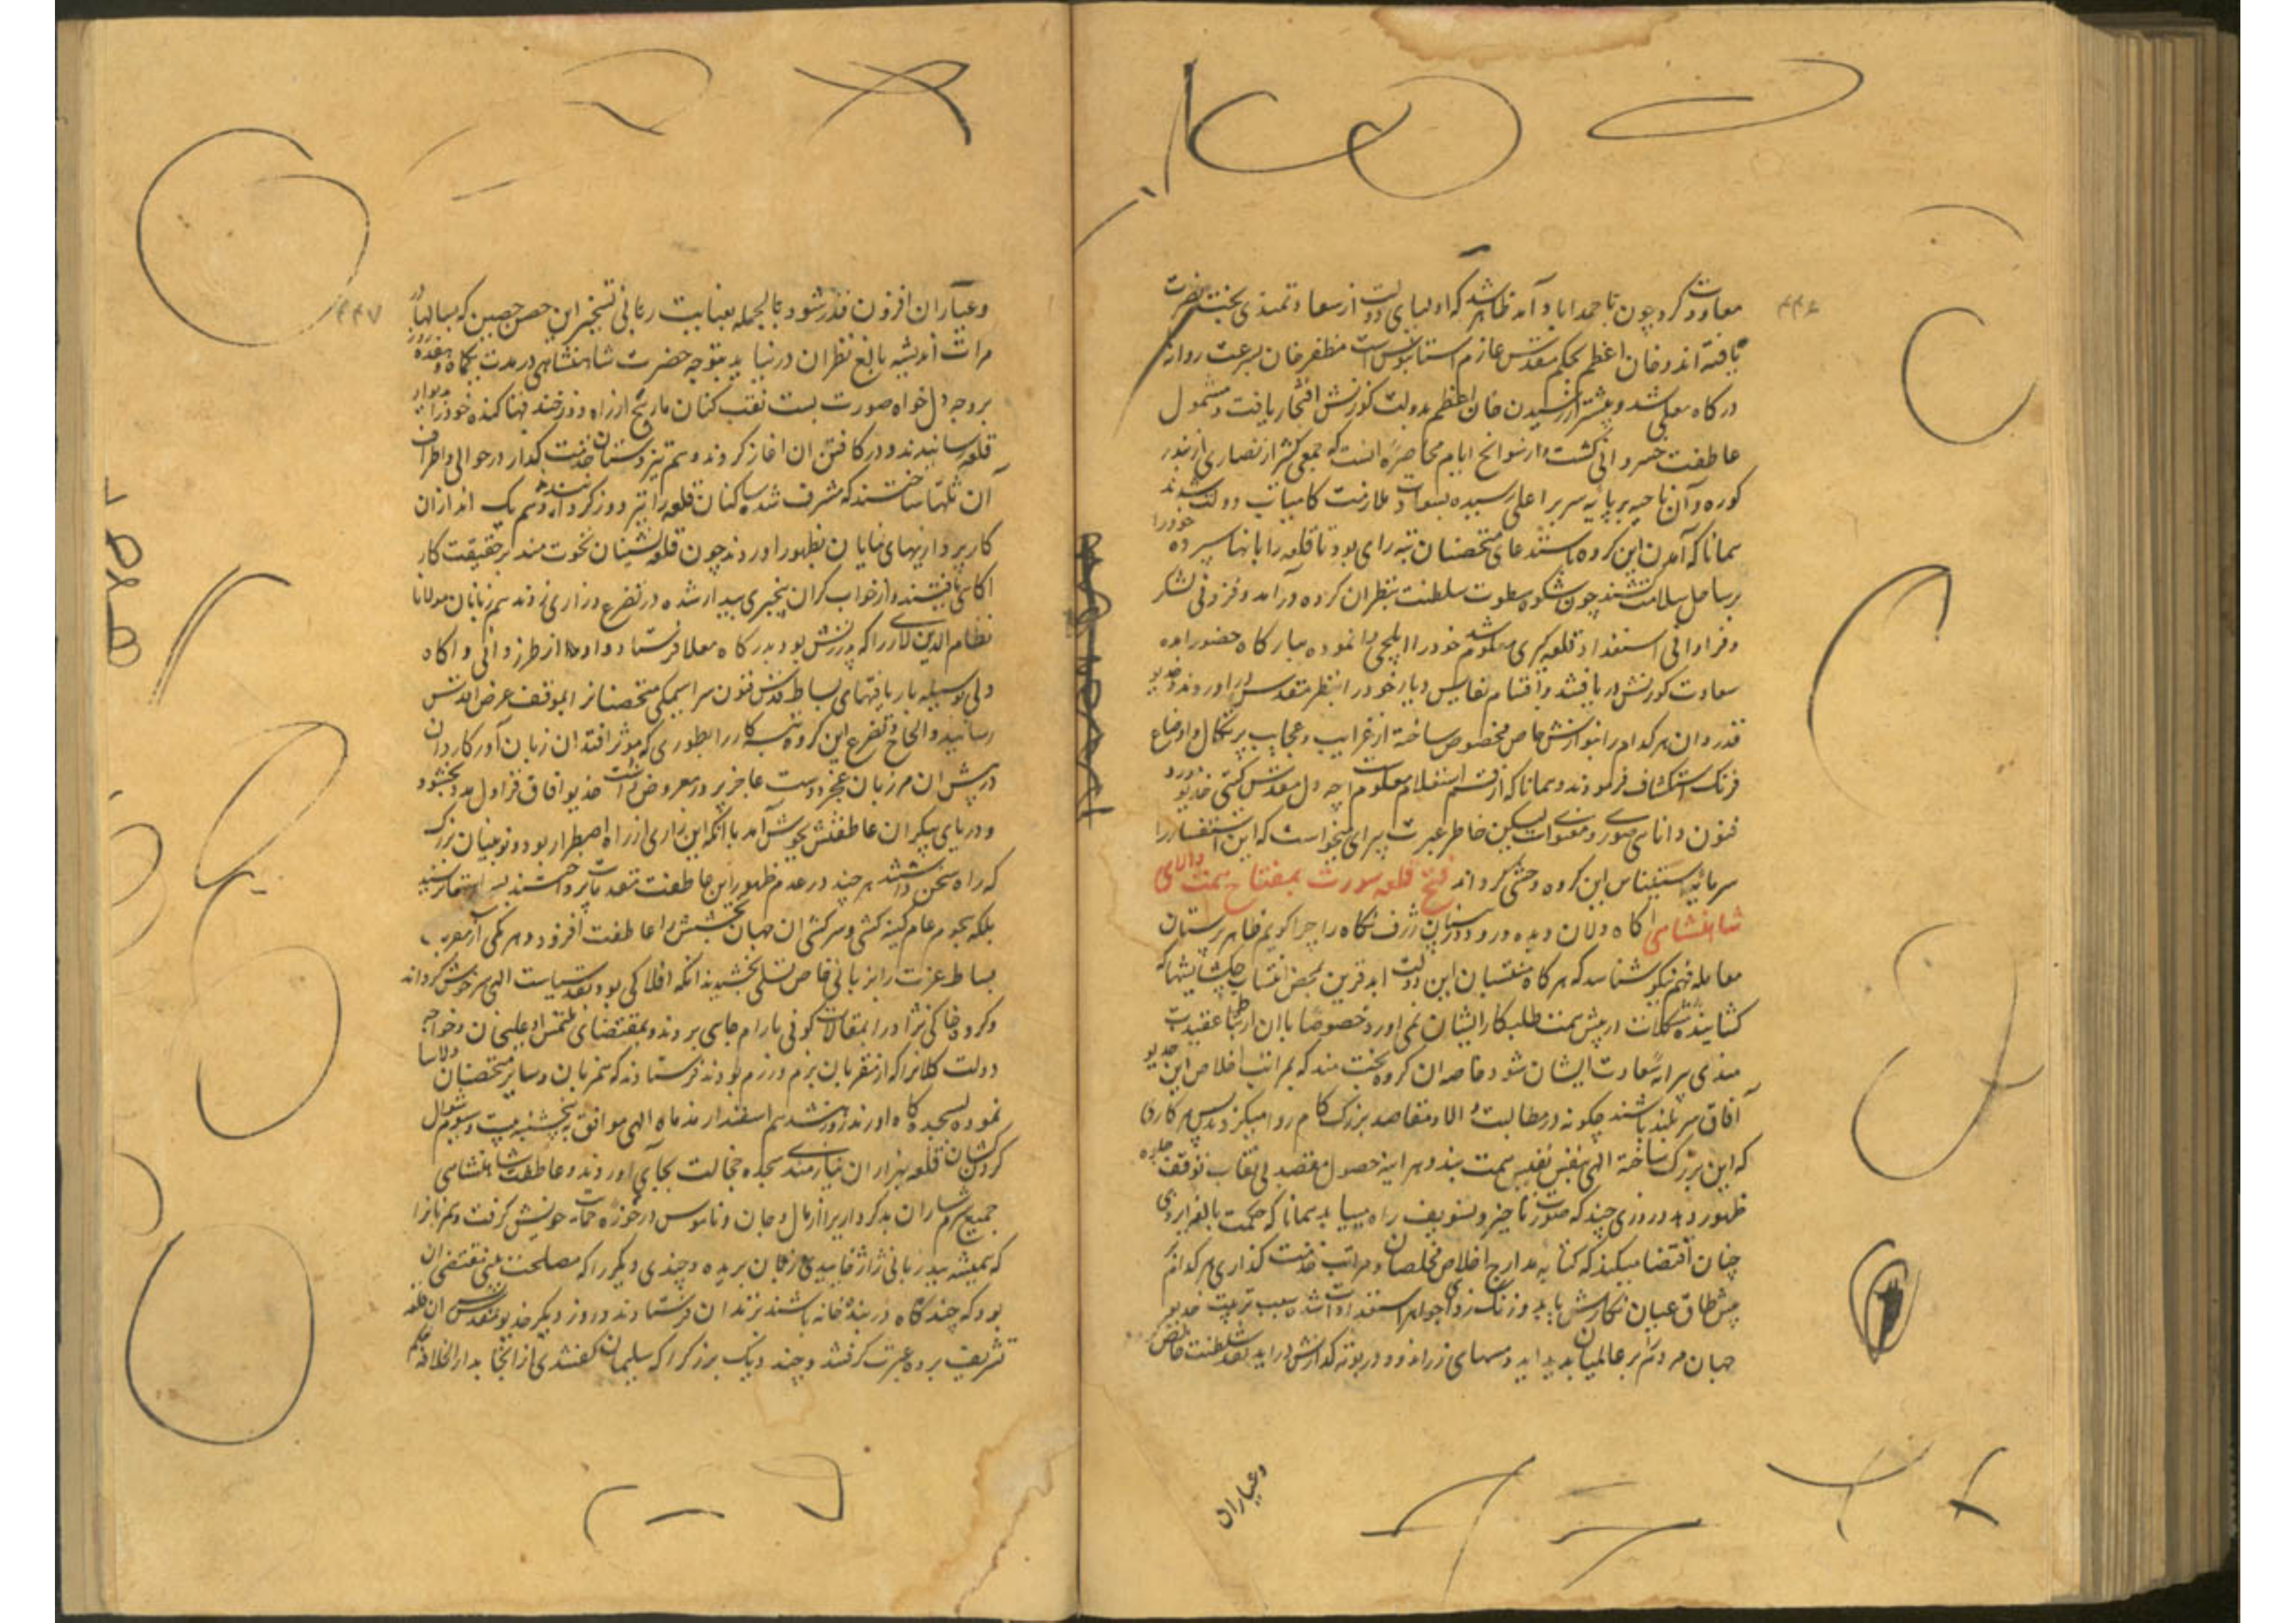 ۴۴۶
معاودت کرد چون باحمدآباد آمد ظاهر شد که اولیای دولت از سعادتمندی بخت نصرت
یافته اند و خان اعظم بحکم مقدس عازم آستانبوس است مظفر خان بسرعت روانهٔ
درگاه معلی شد و پیشتر از رسیدن خان اعظم بدولت کورنش افتخار یافت و مشمول
عاطفت خسروانی گشت و از سوانح ایام محاصره آنست که جمعی کثیر از نصاری از بندر
کووه و آن ناحیه بر پایه سریر اعلی رسیده بسعادت ملازمت کامیاب دولت شدند
همانا که آمدن این کروه باستدعای متحصنان تیره رای بود تا قلعه را بانها سپرده خود را
بر ساحل سلامت کشند چون شکوه سطوت سلطنت بنظر ان کروه درآمد و فزونی لشکر
و فراوانی استعداد قلعه کیری معلوم شد خود را ایلچی وا نموده ببارکاه حضور آمده
سعادت کورنش دریافتند و اقسام نفایس دیار خود را بنظر مقدس دراوردند و خدیو
قدردان هر کدام را بنوازش خاص مخصوص ساخته از غرایب و عجایب پرتکال و اوضاع
فرنک استکشاف فرمودند و همانا که از قسم استعلام معلومات
فنون دانای صوری و معنوی است لیکن خاطر عبرت پیرای میخواست که این استفسار را
سرمایه استیناس این کروه وحشی کرداند فتح قلعه سورت بمفتاح همت والای
شاهنشاهی آکاه دلان دیده ور و دوربینان ژرف نکاه را چرا کویم ظاهر پرستان
معامله فهم نیکو شناسد که هر کاه منتسبان این دولت ابد قرین بمحض انتساب چه کشایشها که
کشاینده مشکلات از پیش همت طلبکار ایشان نمی آورد خصوصا با ان ارتباط عقیدت
مندی پیرایه سعادت ایشان شود خاصه ان کروه بخت مند که بمراتب اخلاص این خدیو
آفاق سربلند باشند چکونه در مطالب والا و مقاصد بزرک کام روا میکردند پس هر کاری
که این بزرک ساخته الهی بنفس نفیس همت بندد هر اینه حصول مقصد بی نقاب توقف جلوه
ظهور دهد و روزی چند که صورت تاخیر و تسویف راه مییابد همانا که حکمت بالغه ایزدی
چنان اقتضا میکند که کتابه مدارج اخلاص مخلصان و مراتب خدمت کذاری هر کدام
پیش طاق عیان نکارش یابد و زنک زدای جواهر استعدادات شده سبب تربیت خدیو
جهان مردم بر عالمیان پدید اید و مسهای زراندود در بوته کدازش دراید نقد سلطنت خالص
وعیاران
۴۴۷
وعیار ان افزون قدر شود بالجمله بعنایت ربانی تسخیر این حصن حصین که بسالها در
مرات اندیشه بالغ نظران درنیاید بتوجه حضرت شاهنشاهی در مدت یکماه و هفده روز
بروجه دلخواه صورت بست نقب کنان مارپیچ از راه دور خندقها کنده خود را بدیوار
قلعه رسانیدند و در کافتن ان اغاز کردند و هم تیزدستان خدمت گذار در حوالی و اطراف
آن تلها ساختند که مشرف شده ساکنان قلعه را تیره روز کردانیدند و هم یک اندازان
کارپردازیهای نمایان بظهور اوردند چون قلعه نشینان نخوت مند بر حقیقت کار
اکاهی یافتند و از خواب کران بیخبری بیدار شده در تضرع و زاری زدند همزبانان مولانا
نظام الدین لاری را که بود بدرکاه معلا فرستادند و او از طرز دانی و اکاه
دلی بوسیله باریافتهای بساط قدس فنون سراسیمکی متحصنانرا بموقف عرض اقدس
رسانید و الحاح و تضرع این کروه تبه کار را بطوری که موثر افتد ان زبان آور کاردان
در پیش ان مرزبان عجز دوست عاجزپرور معروض داشت خدیو افاق فراول به بخشود
و دریای بیکران عاطفتش بجوش آمد با انکه این زاری از راه اضطرار بود و نوئینان بزرک
که راه سخن داشتند هر چند در عدم ظهور این عاطفت مقدمات پرداختند
بلکه هجوم عام کینه کشی و سرکشی ان جهان بخشش را عاطفت افزود و هر یکی از مقربان
بساط عزت را بزبانی خاص تسلی بخشیدند انکه افلاکی بود بتقدیر سیاست الهی سرخوش کرداند
و کروه خاکی نژاد را بمقالات کونی بارام جای بردند و بمقتضای ملتمس او علیخان و خواجه
دولت کلانرا که از مقربان بزم و رزم بودند فرستادند که همزبان و سایر متحصنان دلاسا
نموده بسجده کاه اورند روز رشن هژدهم اسفندارمذ ماه الهی موافق پنجشنبه بیست و سوم شوال
کردنکشان قلعه بهزاران نیازمندی سجده خجالت بجای آوردند و عاطفت شاهنشاهی
جمیع شرمساران بدکردار را از مال و جان و ناموس در حوزه حمایت خویش کرفت و همزبانرا
که همیشه ببدزبانی ژاژخاییدی زبان بریده و چندی دیکر را که مصلحت مقتضی ان
بود که چندکاه در بندخانه باشند بزندان فرستادند و روز دیکر خدیو مقدس ان قلعه
تشریف برده عبرت کرفتند و چند دیک بزرک را که سلیمان کفتندی از انجا بدار الخلافه حکم